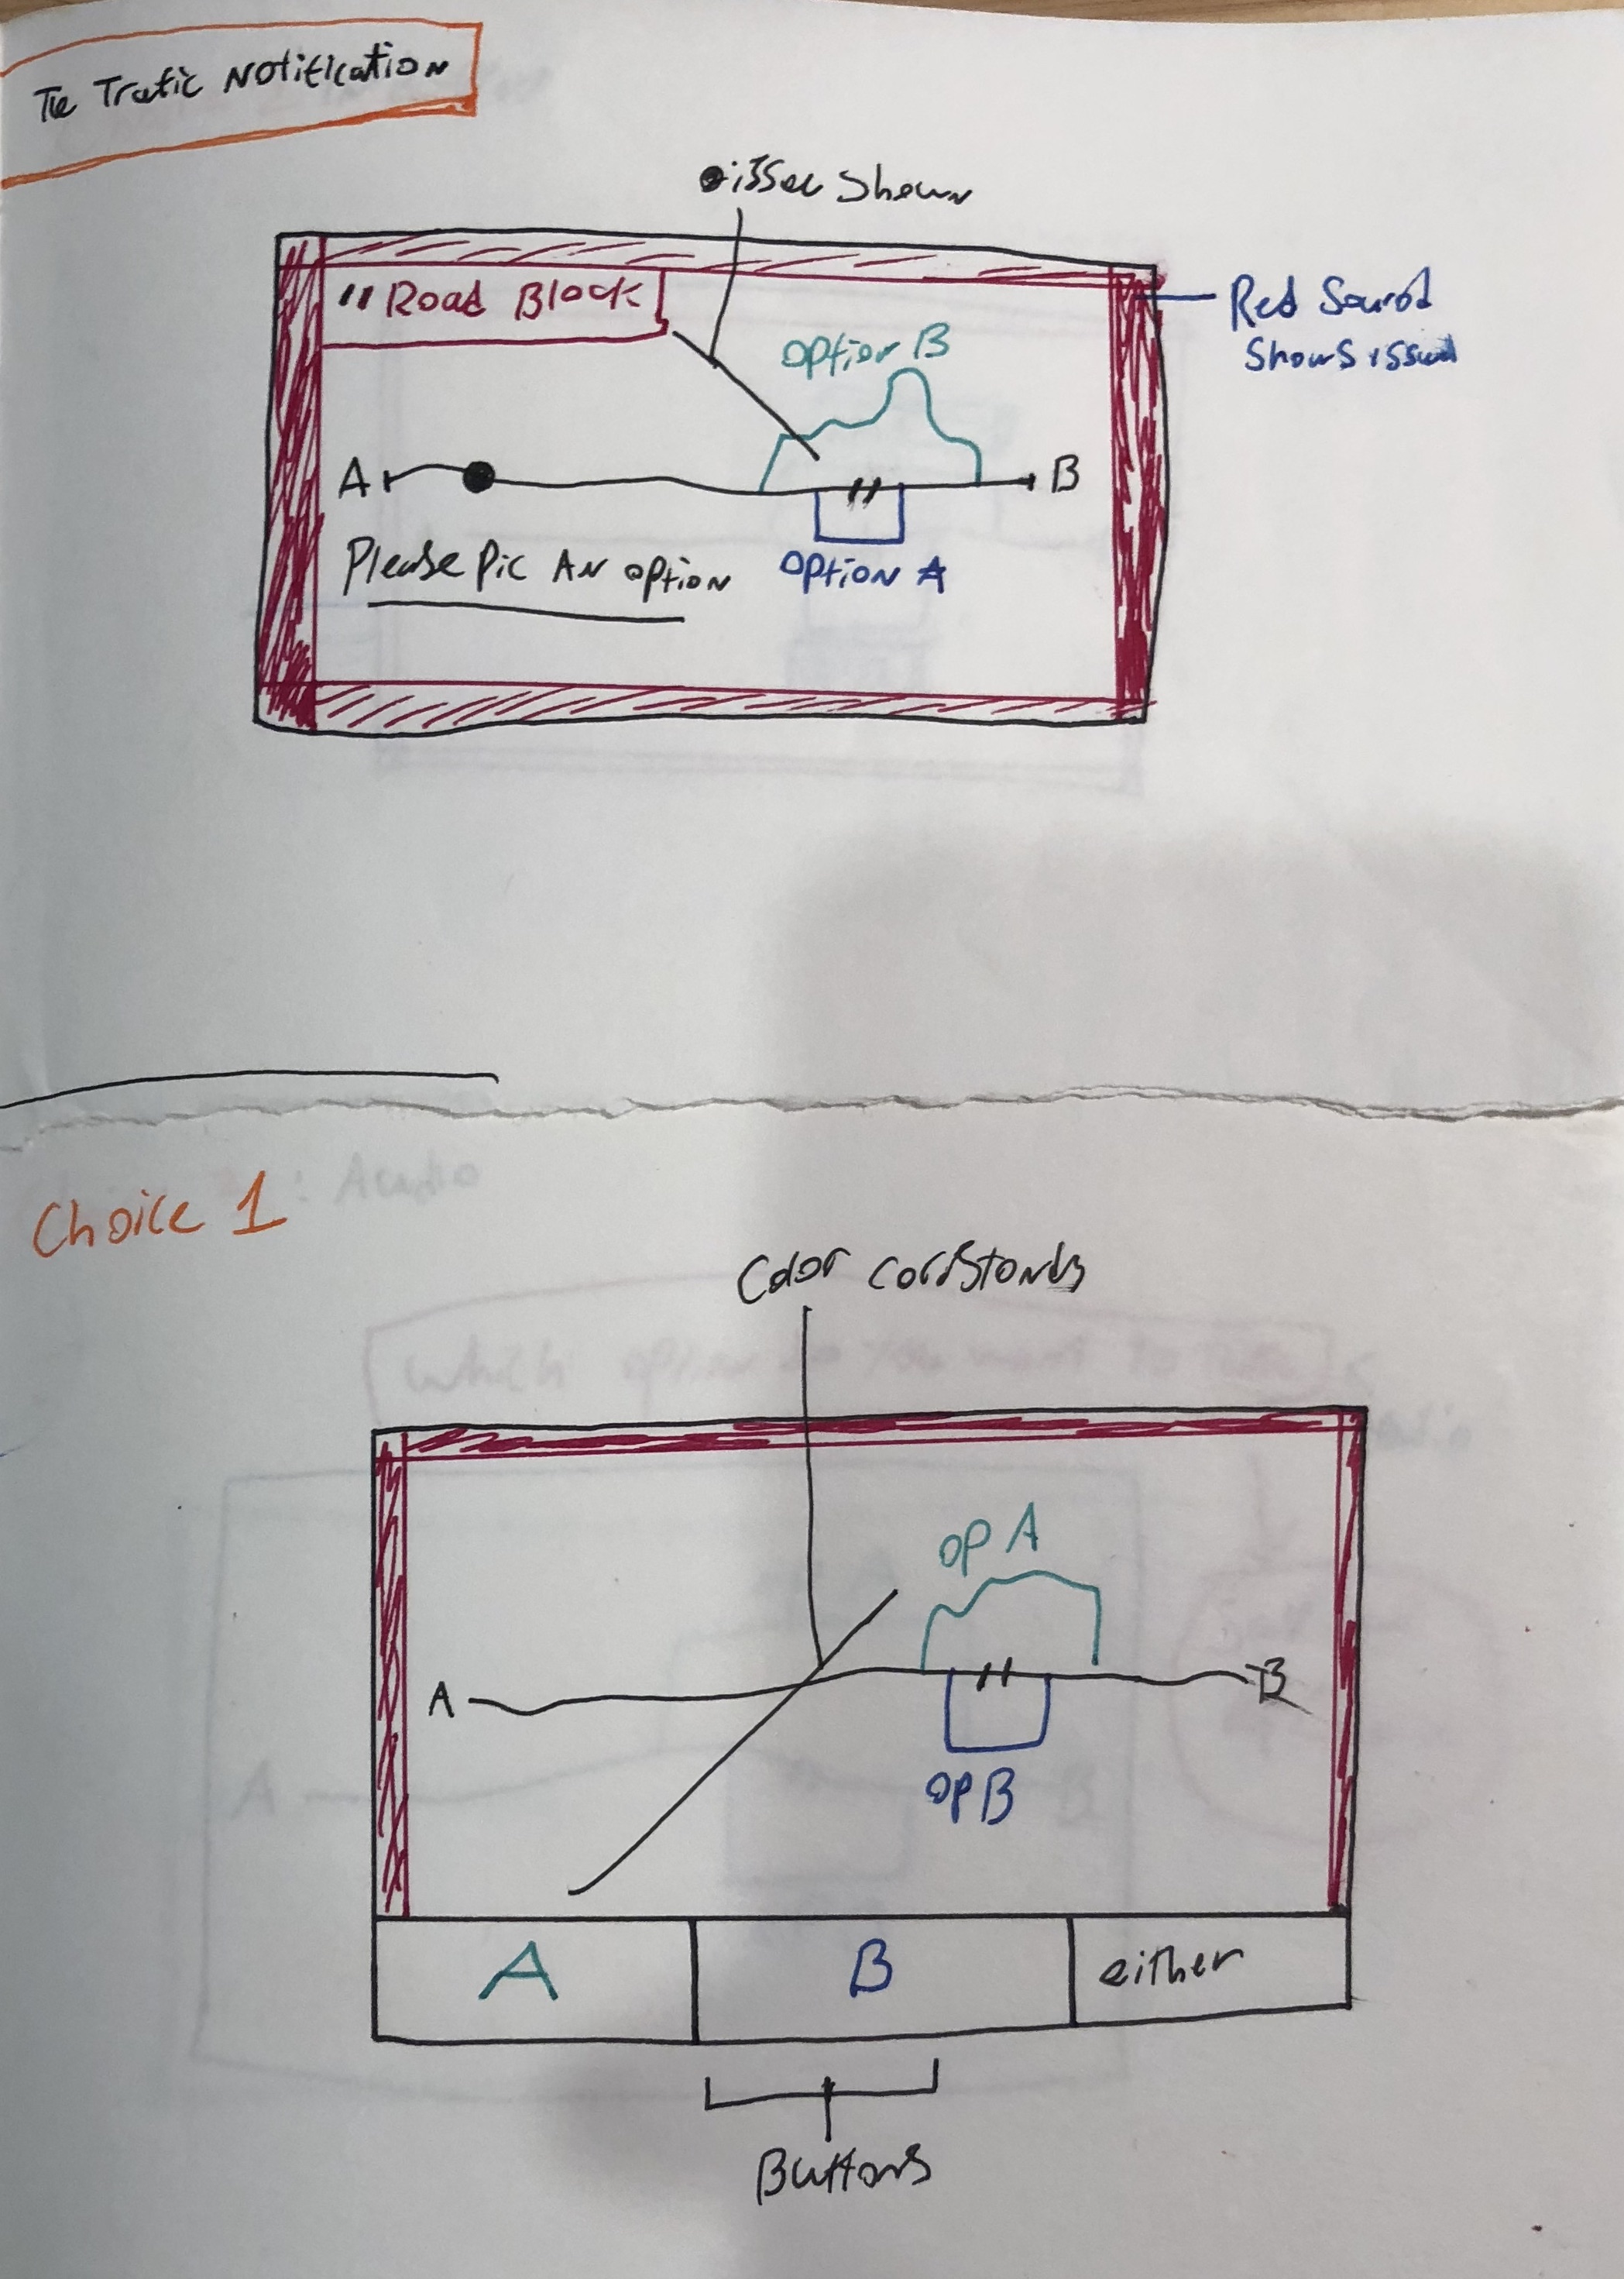 The Trafic Notification
issue Shown
"Road Block
Option B
Red
Shows issue
A
B
Please Pic An option
Option A
Choice 1
Color
OP A
A
B
OP B
A
B
either
Buttons